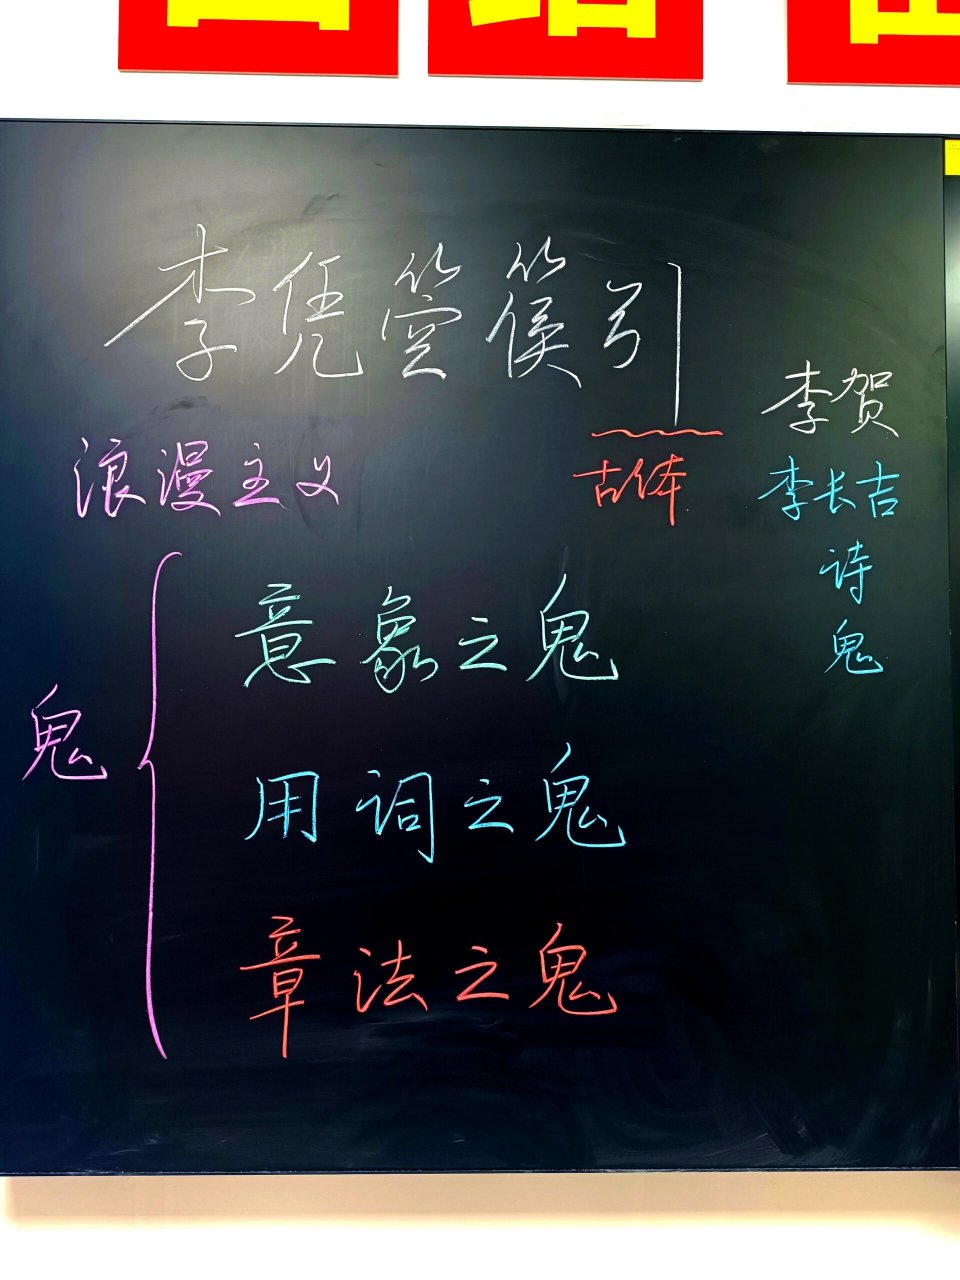 李凭箜篌引
李贺
浪漫主义
古体
李长吉
诗
鬼
鬼
意象之鬼
用词之鬼
章法之鬼